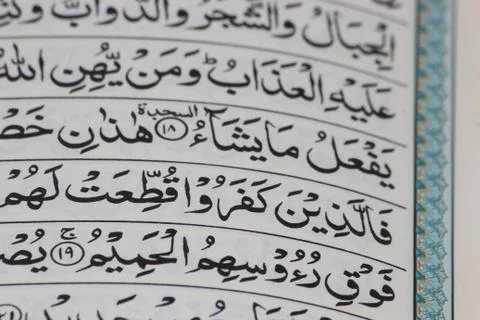 الْجِبَالُ وَالشَّجَرُ وَالدَّوَآبُّ وَ
عَلَيْهِ الْعَذَابُ ؕ وَمَنْ يُّهِنِ اللّٰهُ
يَفْعَلُ مَا يَشَآءُ السجدة ۝۱۸ هٰذٰنِ
فَالَّذِيْنَ كَفَرُوْا قُطِّعَتْ لَهُمْ
فَوْقِ رُءُوْسِهِمُ الْحَمِيْمُ ۚ ۝۱۹